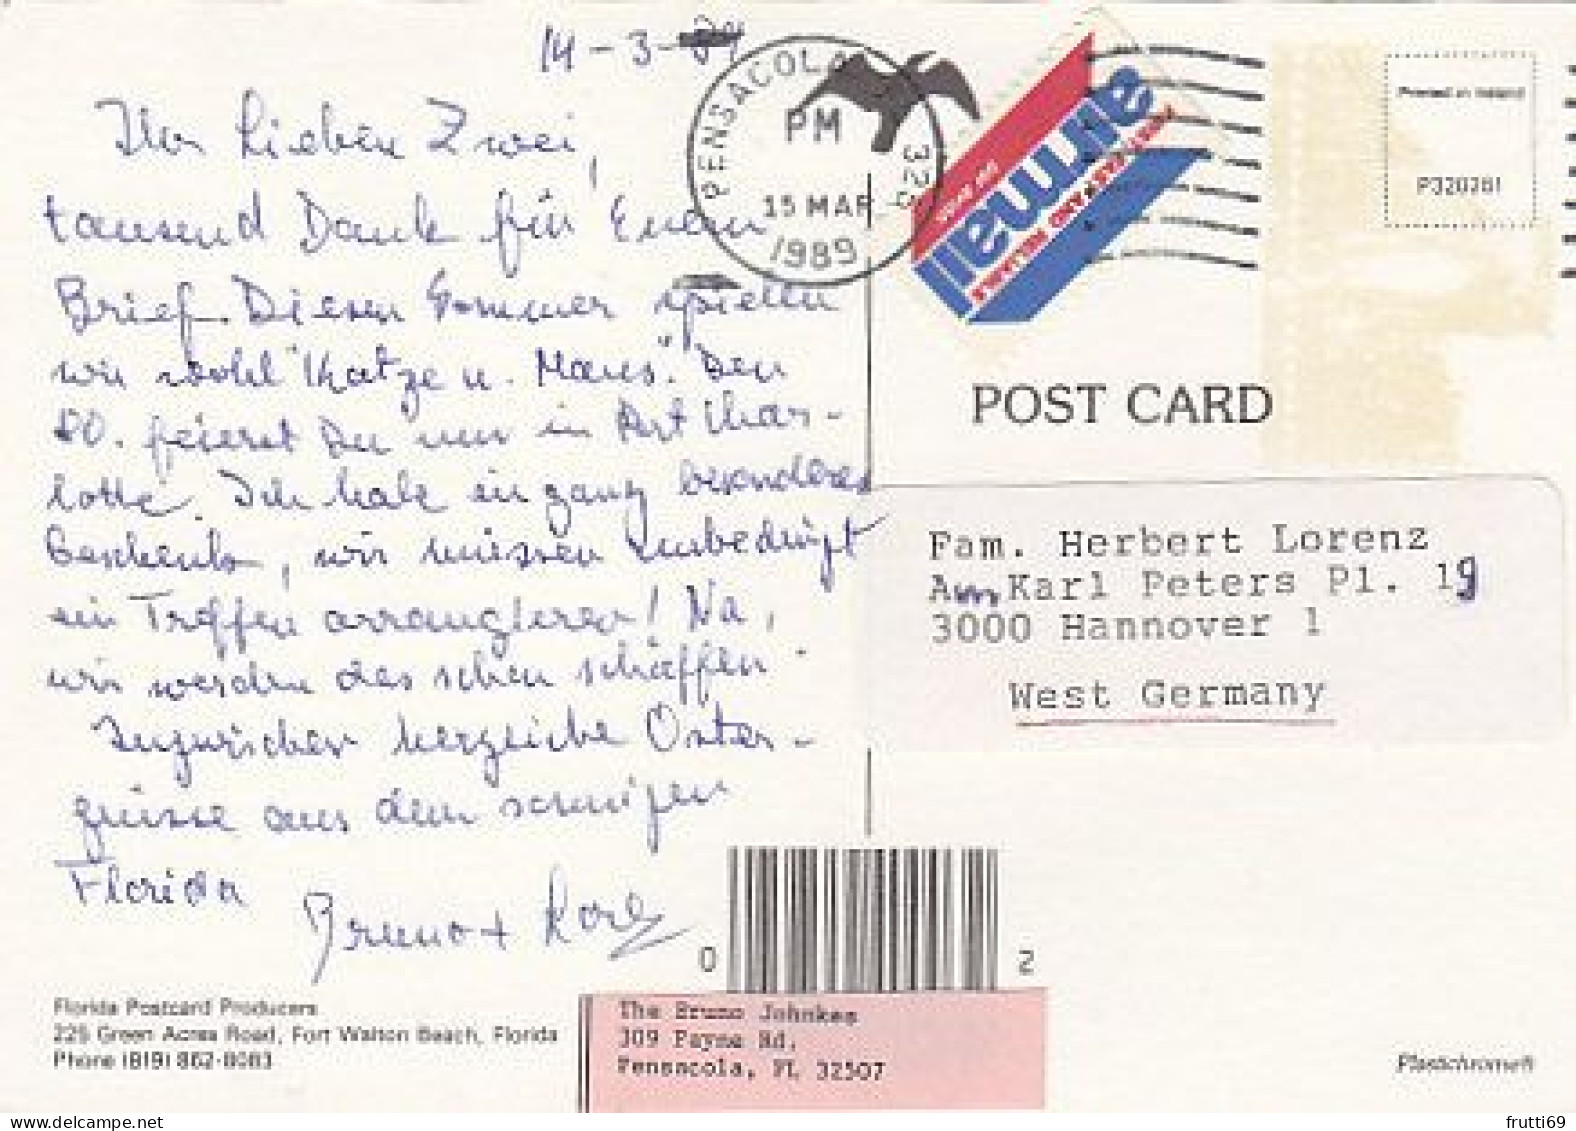 14-3-89
Ihr Lieben Zwei,
tausend Dank für Euren
Brief. Diesen Sommer spielen
wir wohl "Katze u. Maus". Den
80. feierst Du nun in Port Char-
lotte. Ich habe ein ganz besonderes
Geschenk, wir müssen unbedingt
ein Treffen arrangieren! Na,
wir werden das schon schaffen.
Inzwischen herzliche Oster-
grüsse aus dem sonnigen
Florida
Bruno + Lore
PENSACOLA
PM
15 MAR
1989
airmail
Printed in Ireland
P320281
POST CARD
Fam. Herbert Lorenz
Am Karl Peters Pl. 19
3000 Hannover 1
West Germany
0 2
Florida Postcard Producers
225 Green Acres Road, Fort Walton Beach, Florida
Phone (819) 862-8083
The Bruno Johnkes
309 Payne Rd.
Pensacola, FL 32507
Plastichrome®
frutti69